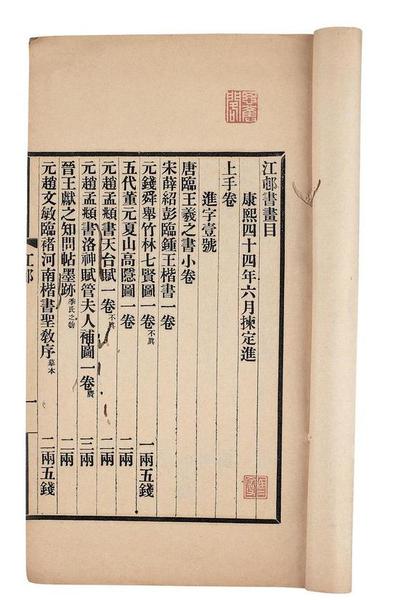 江邨書畫目
康熙四十四年六月揀定進
上手卷
進字壹號
唐臨王羲之書小卷
宋薛紹彭臨鍾王楷書一卷
元錢舜舉竹林七賢圖一卷不真 一兩五錢
五代董元夏山高隱圖一卷 二兩
元趙孟頫書天台賦一卷不真 二兩
元趙孟頫書洛神賦管夫人補圖一卷贋 三兩
晉王獻之知問帖墨跡季氏之物 二兩
元趙文敏臨褚河南楷書聖教序摹本 二兩五錢
江邨
一